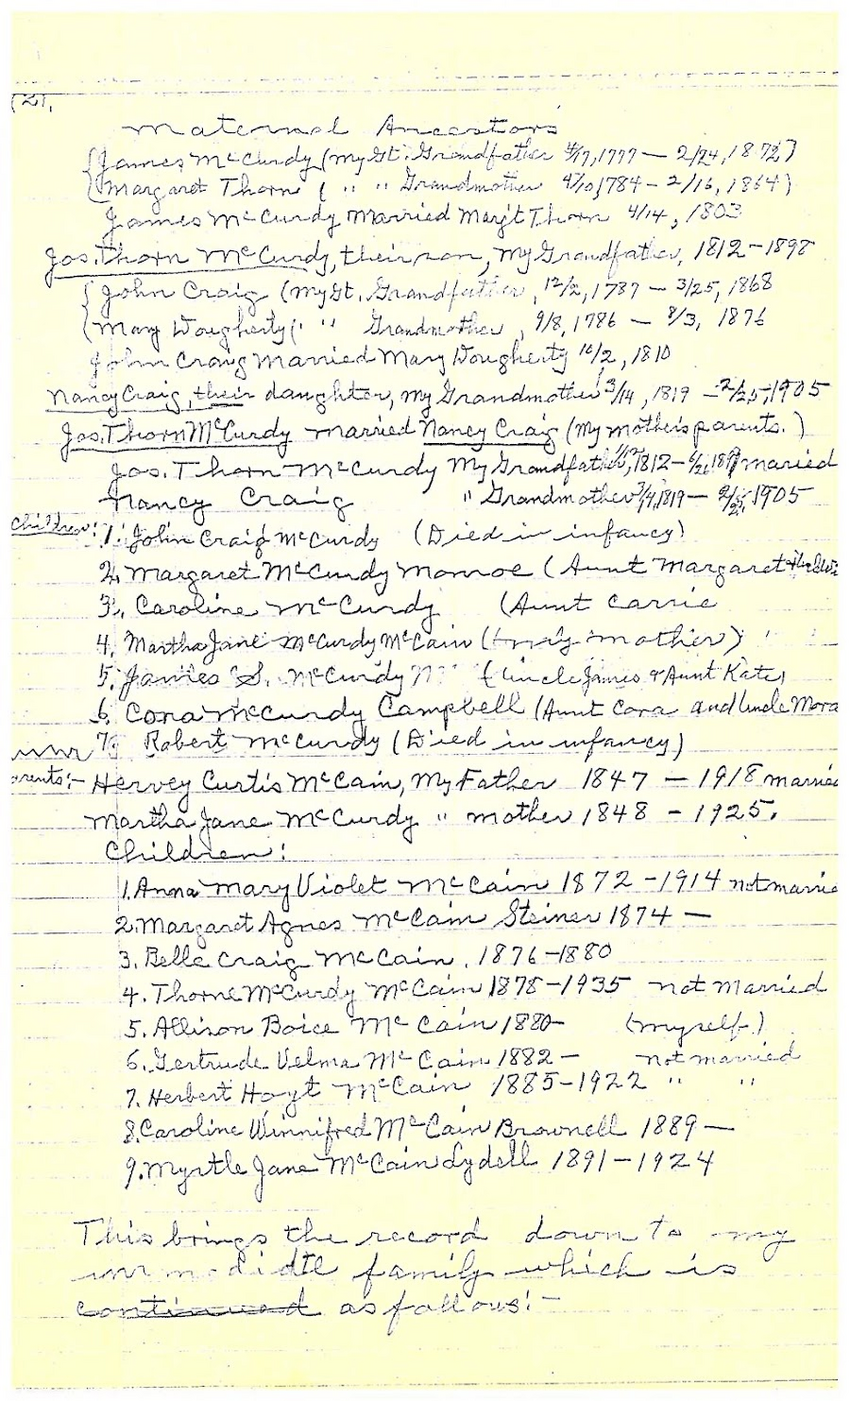 (2).
Maternal Ancestors
James McCurdy (My Gt. Grandfather 4/17, 1777 — 2/24, 1872)
Margaret Thorn ( " " Grandmother 4/10, 1784 — 2/16, 1864)
James McCurdy Married Marg't Thorn 4/14, 1803
Jas. Thorn McCurdy, their son, My Grandfather, 1812 — 1898
John Craig (My Gt. Grandfather, 12/2, 1787 — 3/25, 1868
Mary Dougherty ( " " Grandmother, 9/8, 1786 — 8/3, 1876
John Craig Married Mary Dougherty 10/2, 1810
Nancy Craig, their daughter, My Grandmother 3/14, 1819 — 2/25, 1905
Jas. Thorn McCurdy married Nancy Craig (My mother's parents.)
Jas. Thorn McCurdy My Grandfather, 1812 — married
Nancy Craig " Grandmother 3/14, 1819 — 2/25, 1905
Children:
1. John Craig McCurdy (Died in infancy)
2. Margaret McCurdy Monroe (Aunt Margaret
3. Caroline McCurdy (Aunt Carrie
4. Martha Jane McCurdy McCain (my mother)
5. James S. McCurdy (Uncle James & Aunt Kate)
6. Cora McCurdy Campbell (Aunt Cora and Uncle
7. Robert McCurdy (Died in infancy)
arents:- Hervey Curtis McCain, My Father 1847 — 1918 married
Martha Jane McCurdy " mother 1848 - 1925.
Children:
1. Anna Mary Violet McCain 1872 - 1914 not marrie
2. Margaret Agnes McCain Steiner 1874 —
3. Belle Craig McCain. 1876 - 1880
4. Thorne McCurdy McCain 1878 - 1935 not married
5. Allison Boice McCain 1880 - (myself.)
6. Gertrude Velma McCain 1882 - not married
7. Herbert Hoyt McCain 1885 - 1922 " "
8. Caroline Winnifred McCain Brownell 1889 —
9. Myrtle Jane McCain Lydell 1891 - 1924
This brings the record down to my
family which is
continued as follows:-